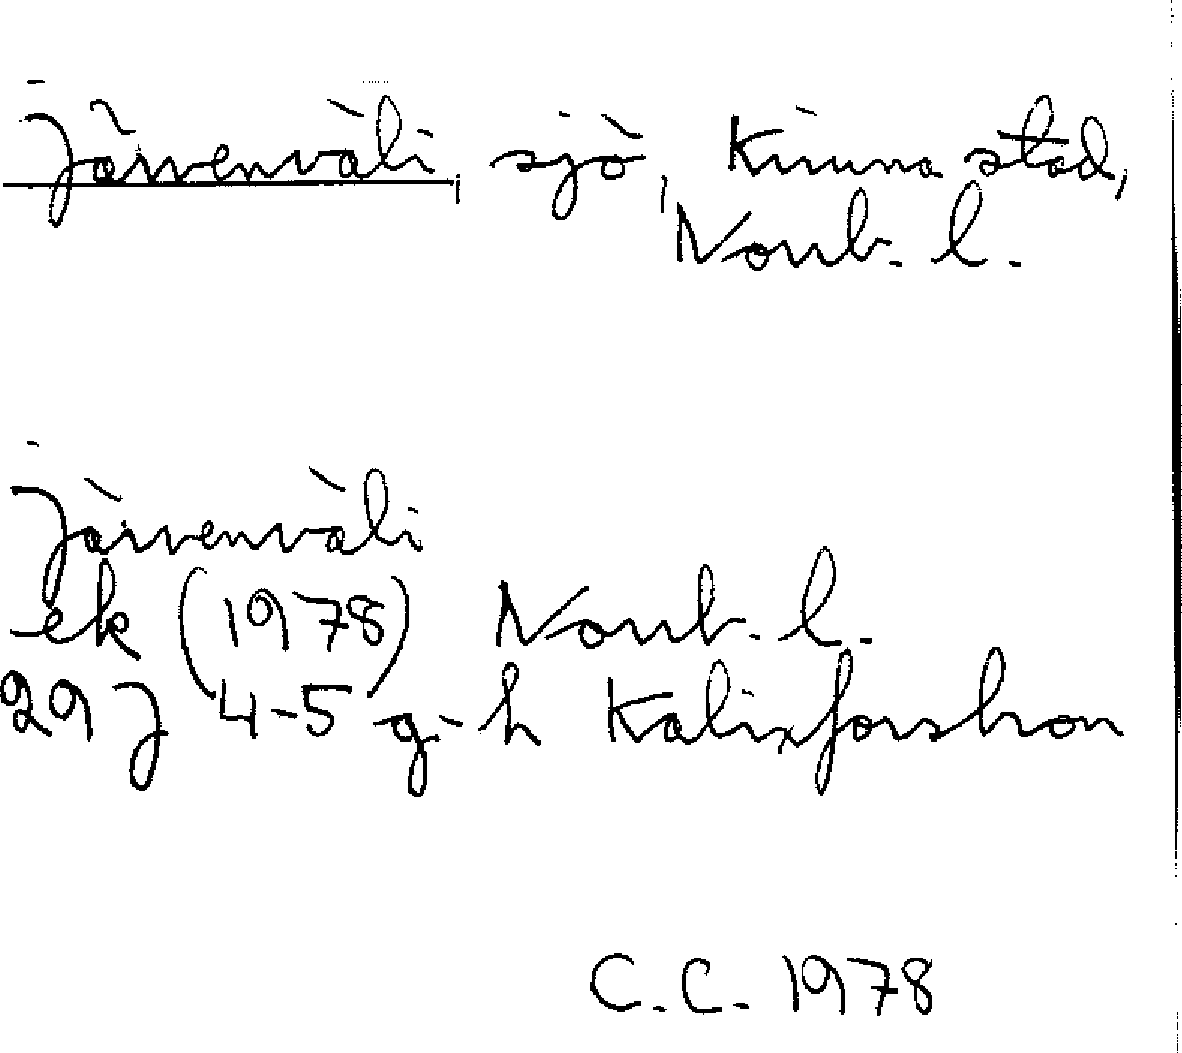 Järvenväli, sjö, Kiruna stad,
Norrb. l.
Järvenväli
ek (1978) Norrb. l.
29J 4-5 g-h Kalixforsbron
C.C. 1978